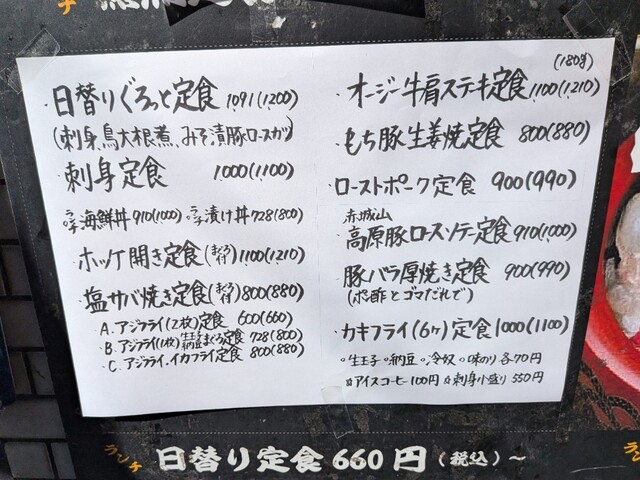 ランチ
・日替りぐろっと定食 1091(1200)
(刺身、鳥大根煮、みそ漬豚ロースカツ)
・刺身定食 1000(1100)
・ランチ海鮮丼 910(1000) ランチ漬け丼 728(800)
・ホッケ開き定食 1,100(1,210)
・塩サバ焼き定食 800(880)
A.アジフライ(2枚)定食 600(660)
B.アジフライ(1枚) 定食 728(800)
C.アジフライ.イカフライ定食 800(880)
(180g)
・オージー牛肩ステーキ定食 1,100(1,210)
・もち豚生姜焼定食 800(880)
・ローストポーク定食 900(990)
赤城山
・高原豚ロースソテー定食 910(1000)
・豚バラ厚焼き定食 900(990)
(ポン酢とゴマだれで)
・カキフライ(6ヶ)定食 1000(1100)
○生玉子 ○納豆 ○冷奴 ○味のり 各70円
☆アイスコーヒー100円 ☆刺身小盛り 550円
ランチ 日替り定食 660円(税込)~